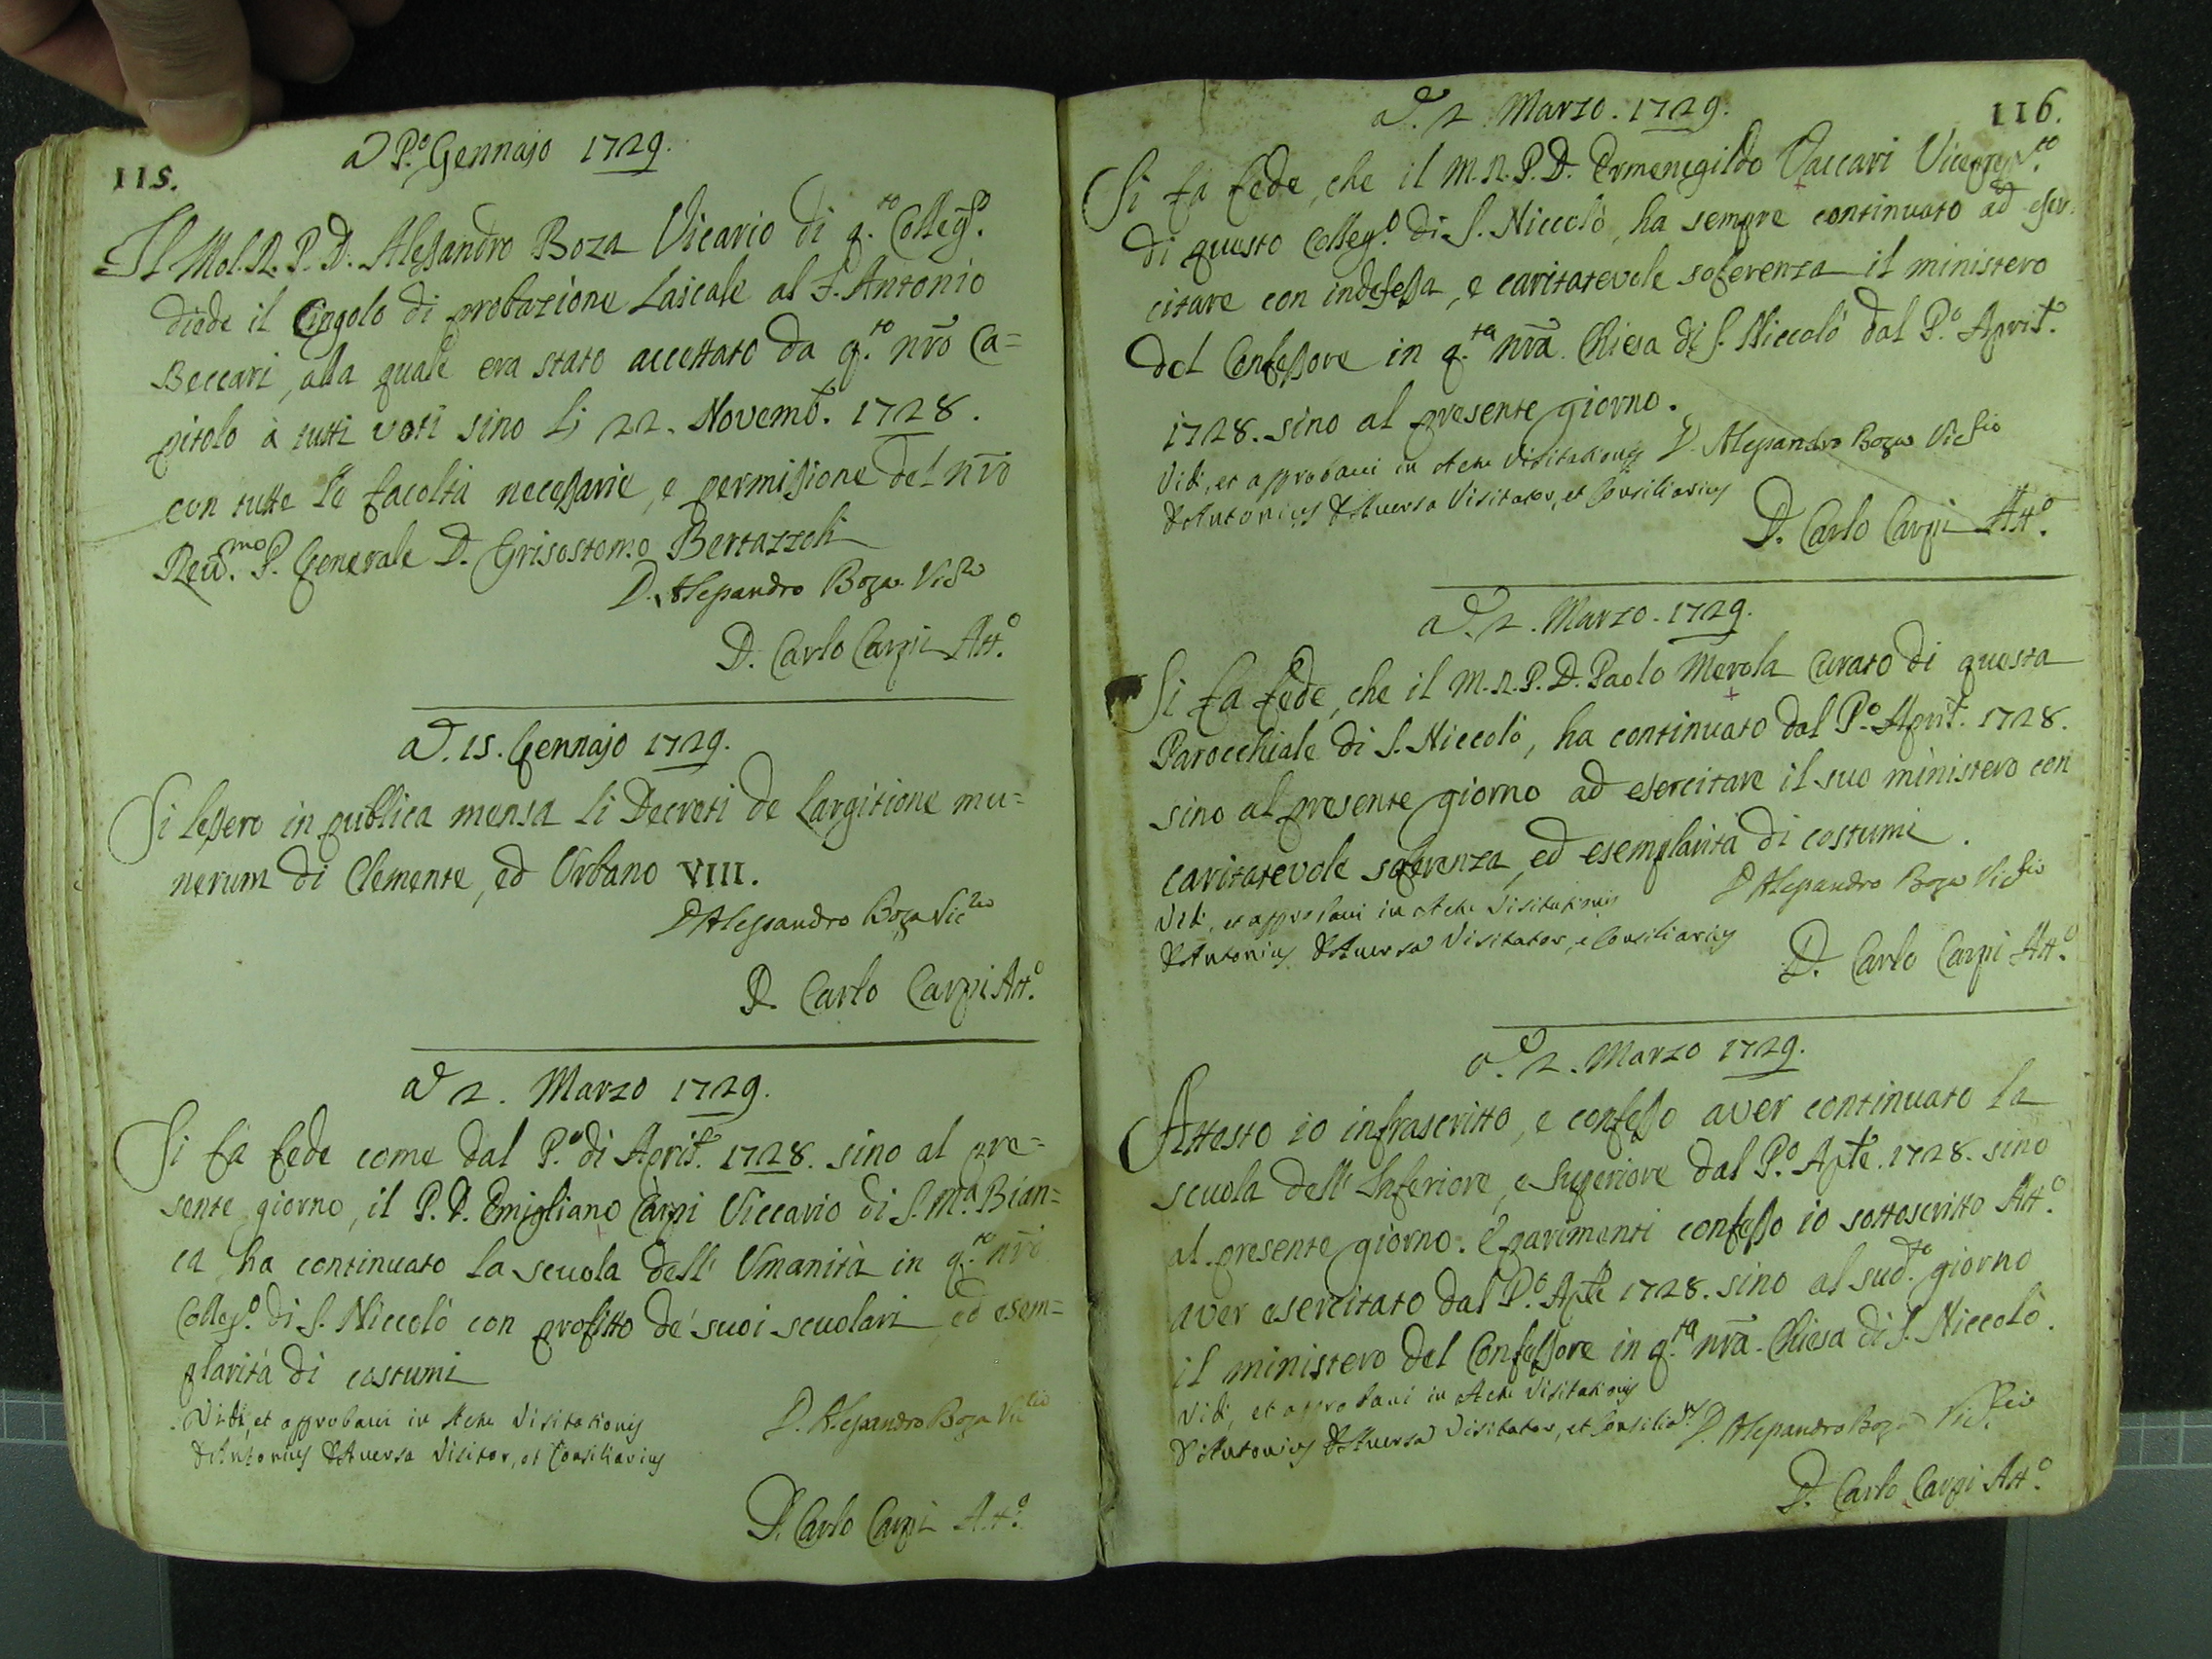 115.
a P.º Gennajo 1729.
Il Mol. R. P. D. Alessandro Boza Vicario di q.to Colleg.º
diede il Cingolo di probazione Laicale al F. Antonio
Beccari, alla quale era stato accettato da q.to nr̃o Ca=
pitolo à tutti voti sino li 22. Novemb. 1728.
con tutte le facoltà necessarie, e permissione del nr̃o
Reu.mo P. Generale D. Grisostomo Bertazzoli
D. Alessandro Boza Vic.rio
D. Carlo Carpi Att.º
a. 15. Gennajo 1729.
Si lessero in publica mensa li Decreti de Largitione mu=
nerum di Clemente, ed Urbano VIII.
D Alessandro Boza Vic.rio
D. Carlo Carpi Att.º
a 2. Marzo 1729.
Si fà fede come dal P.º di April. 1728. sino al pre=
sente giorno, il P. D. Emigliano Carpi Viccario di S. M.a Bian=
ca ha continuato la scuola dell' Umanità in q.to nr̃o
Colleg.º di S. Niccolò con profitto de' suoi scuolari ed esem=
plarità di costumi
Vidi, et approbaui in Actu Visitationis
D Antonius D'Auersa Visitor, et Consiliarius
D. Alessandro Boza Vic.rio
D. Carlo Carpi Att.º
116.
a. 2 Marzo. 1729.
Si fà fede, che il M. R. P. D. Ermenegildo Vaccari Viceprep.to
di questo Colleg.º di S. Niccolò, ha sempre continuato ad eser
citare con indefessa, e caritatevole soferenza il ministero
del Confessore in q.ta nr̃a Chiesa di S. Niccolò dal P.º April.
1728. sino al presente giorno.
D. Alessandro Boza Vic.rio
Vidi, et approbaui in Actu Visitationis
D Antonius D'Auersa Visitator, et Consiliarius
D. Carlo Carpi Att.º
a. 2. Marzo. 1729.
Si fà fede, che il M. R. P. D. Paolo Merola Curato di questa
Parocchiale di S. Niccolò, ha continuato dal P.º April. 1728.
sino al presente giorno ad esercitare il suo ministero con
caritatevole soferenza, ed esemplarità di costumi.
D Alessandro Boza Vic.rio
Vidi, et approbaui in Actu Visitationis
D Antonius D'Auersa Visitator, e Consiliarius
D. Carlo Carpi Att.º
a. 2. Marzo 1729.
Attesto io infrascritto, e confesso aver continuato la
scuola dell' Inferiore, e Superiore dal P.º Aple. 1728. sino
al presente giorno. E parimenti confesso io sottoscritto Att.º
aver esercitato dal P.º Aple 1728. sino al sud.to giorno
il ministero del Confessore in q.ta nr̃a Chiesa di S. Niccolò.
Vidi, et approbaui in Actu Visitationis
D Antonius D'Auersa Visitator, et Consiliarius
D. Alessandro Boza Vic.rio
D. Carlo Carpi Att.º